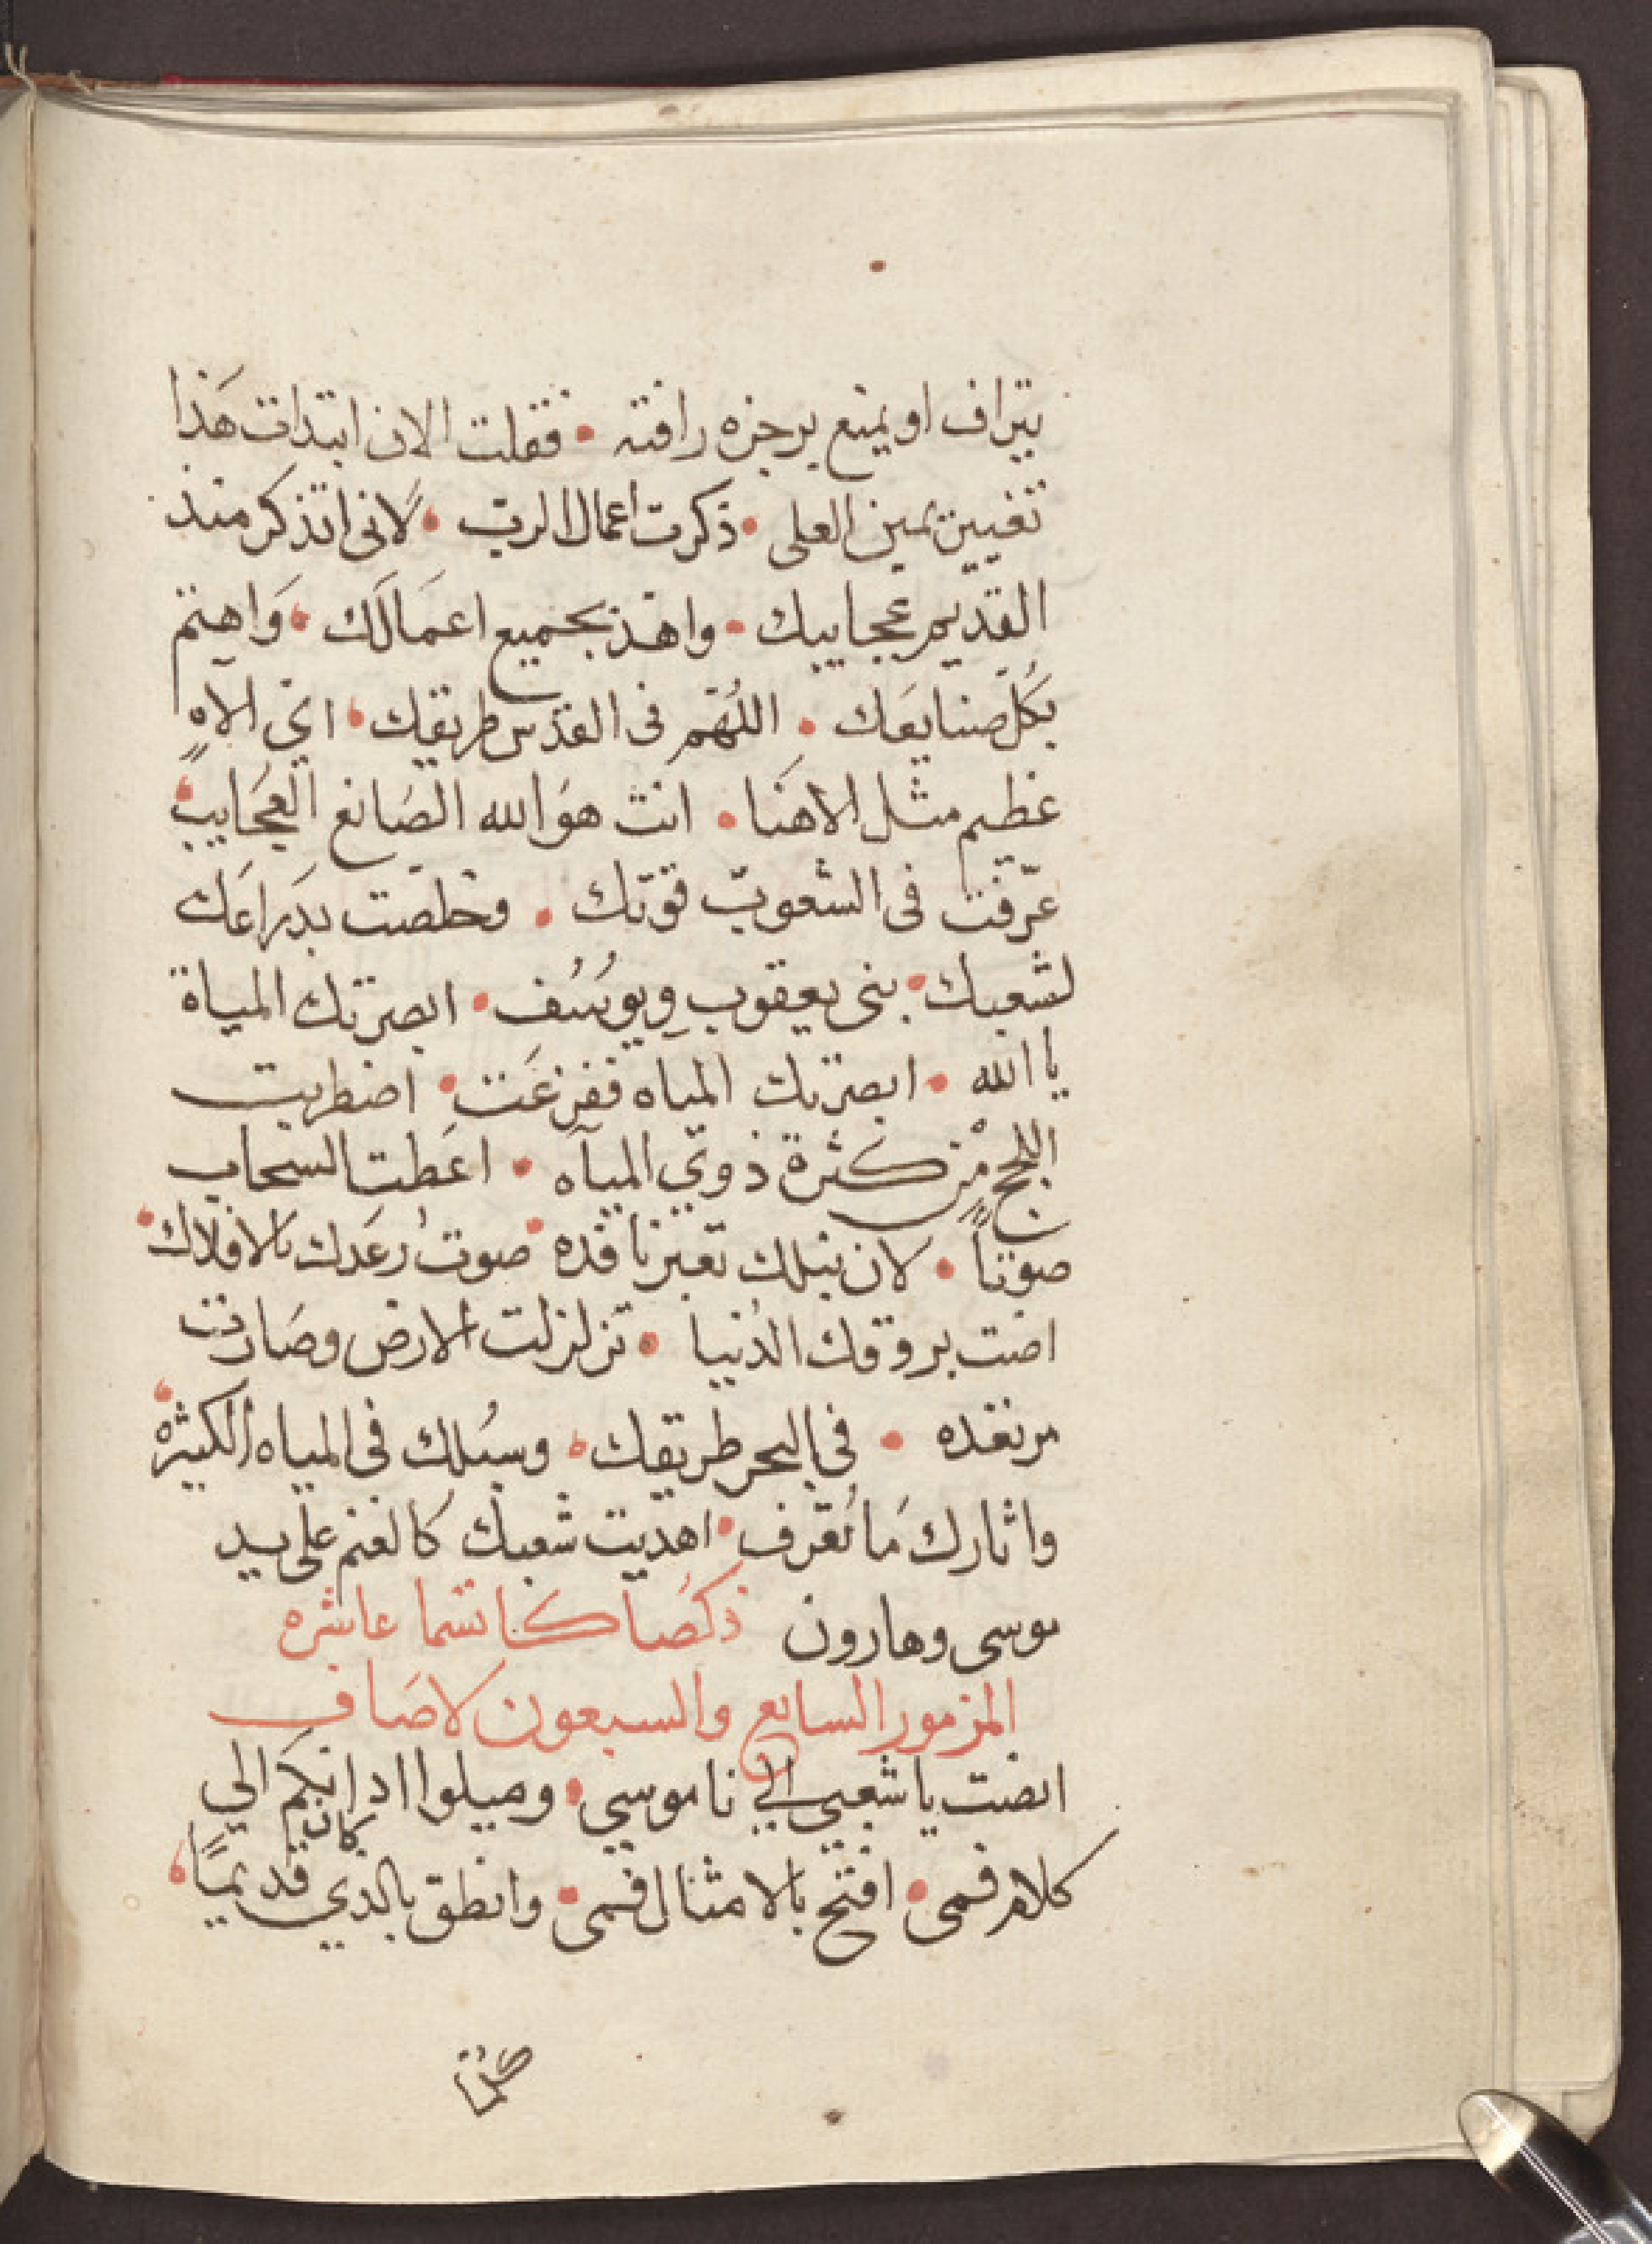 يتراف او يمنع برجزه رافته • فقلت الان ابتدات هَذا
تغيير يمين العلى • ذكرت اعمال الرب • لانى اتذكر منذ
القديم عجاييبك • واهذ بجميع اعمَالَك • وَاهتم
بكُل صنايعَك • اللهُم فى القدس طريقك • اي الاهٍ
عظيم مثل الاهَنا • انت هوَ الله الصَانع العجَايب •
عرّفت فى الشعوب قوّتك • وخلصَت بدَراعَك
لشعبك • بنى يعقوب ويوسُف • ابصرتك المياة
يا الله • ابصرتك المياه ففزعَت • اضطربت
اللجج مْن كثرة ذوي المياه • اعَطت السحاب
صوتاً • لان نبلك تعبر نافده • صوت رعَدك بالافلاك •
اضت بروقك الدُنيا • تزلزلت الارض وصَارت
مرتعده • فى البحر طريقك • وسبُلك فى المياه الكثيره •
واثارك مَا تُعرف • اهديت شعبك كالغنم على يد
موسى وهارون ذكصَا كاتسما عاشره
المزمور السابع والسبعون لاصَاف
انصت يا شعبي الي ناموسي • وميلوا ادانكم الي
كلام فمى • افتح بالامثال فمى • وانطق بالذي كان قديمًا •